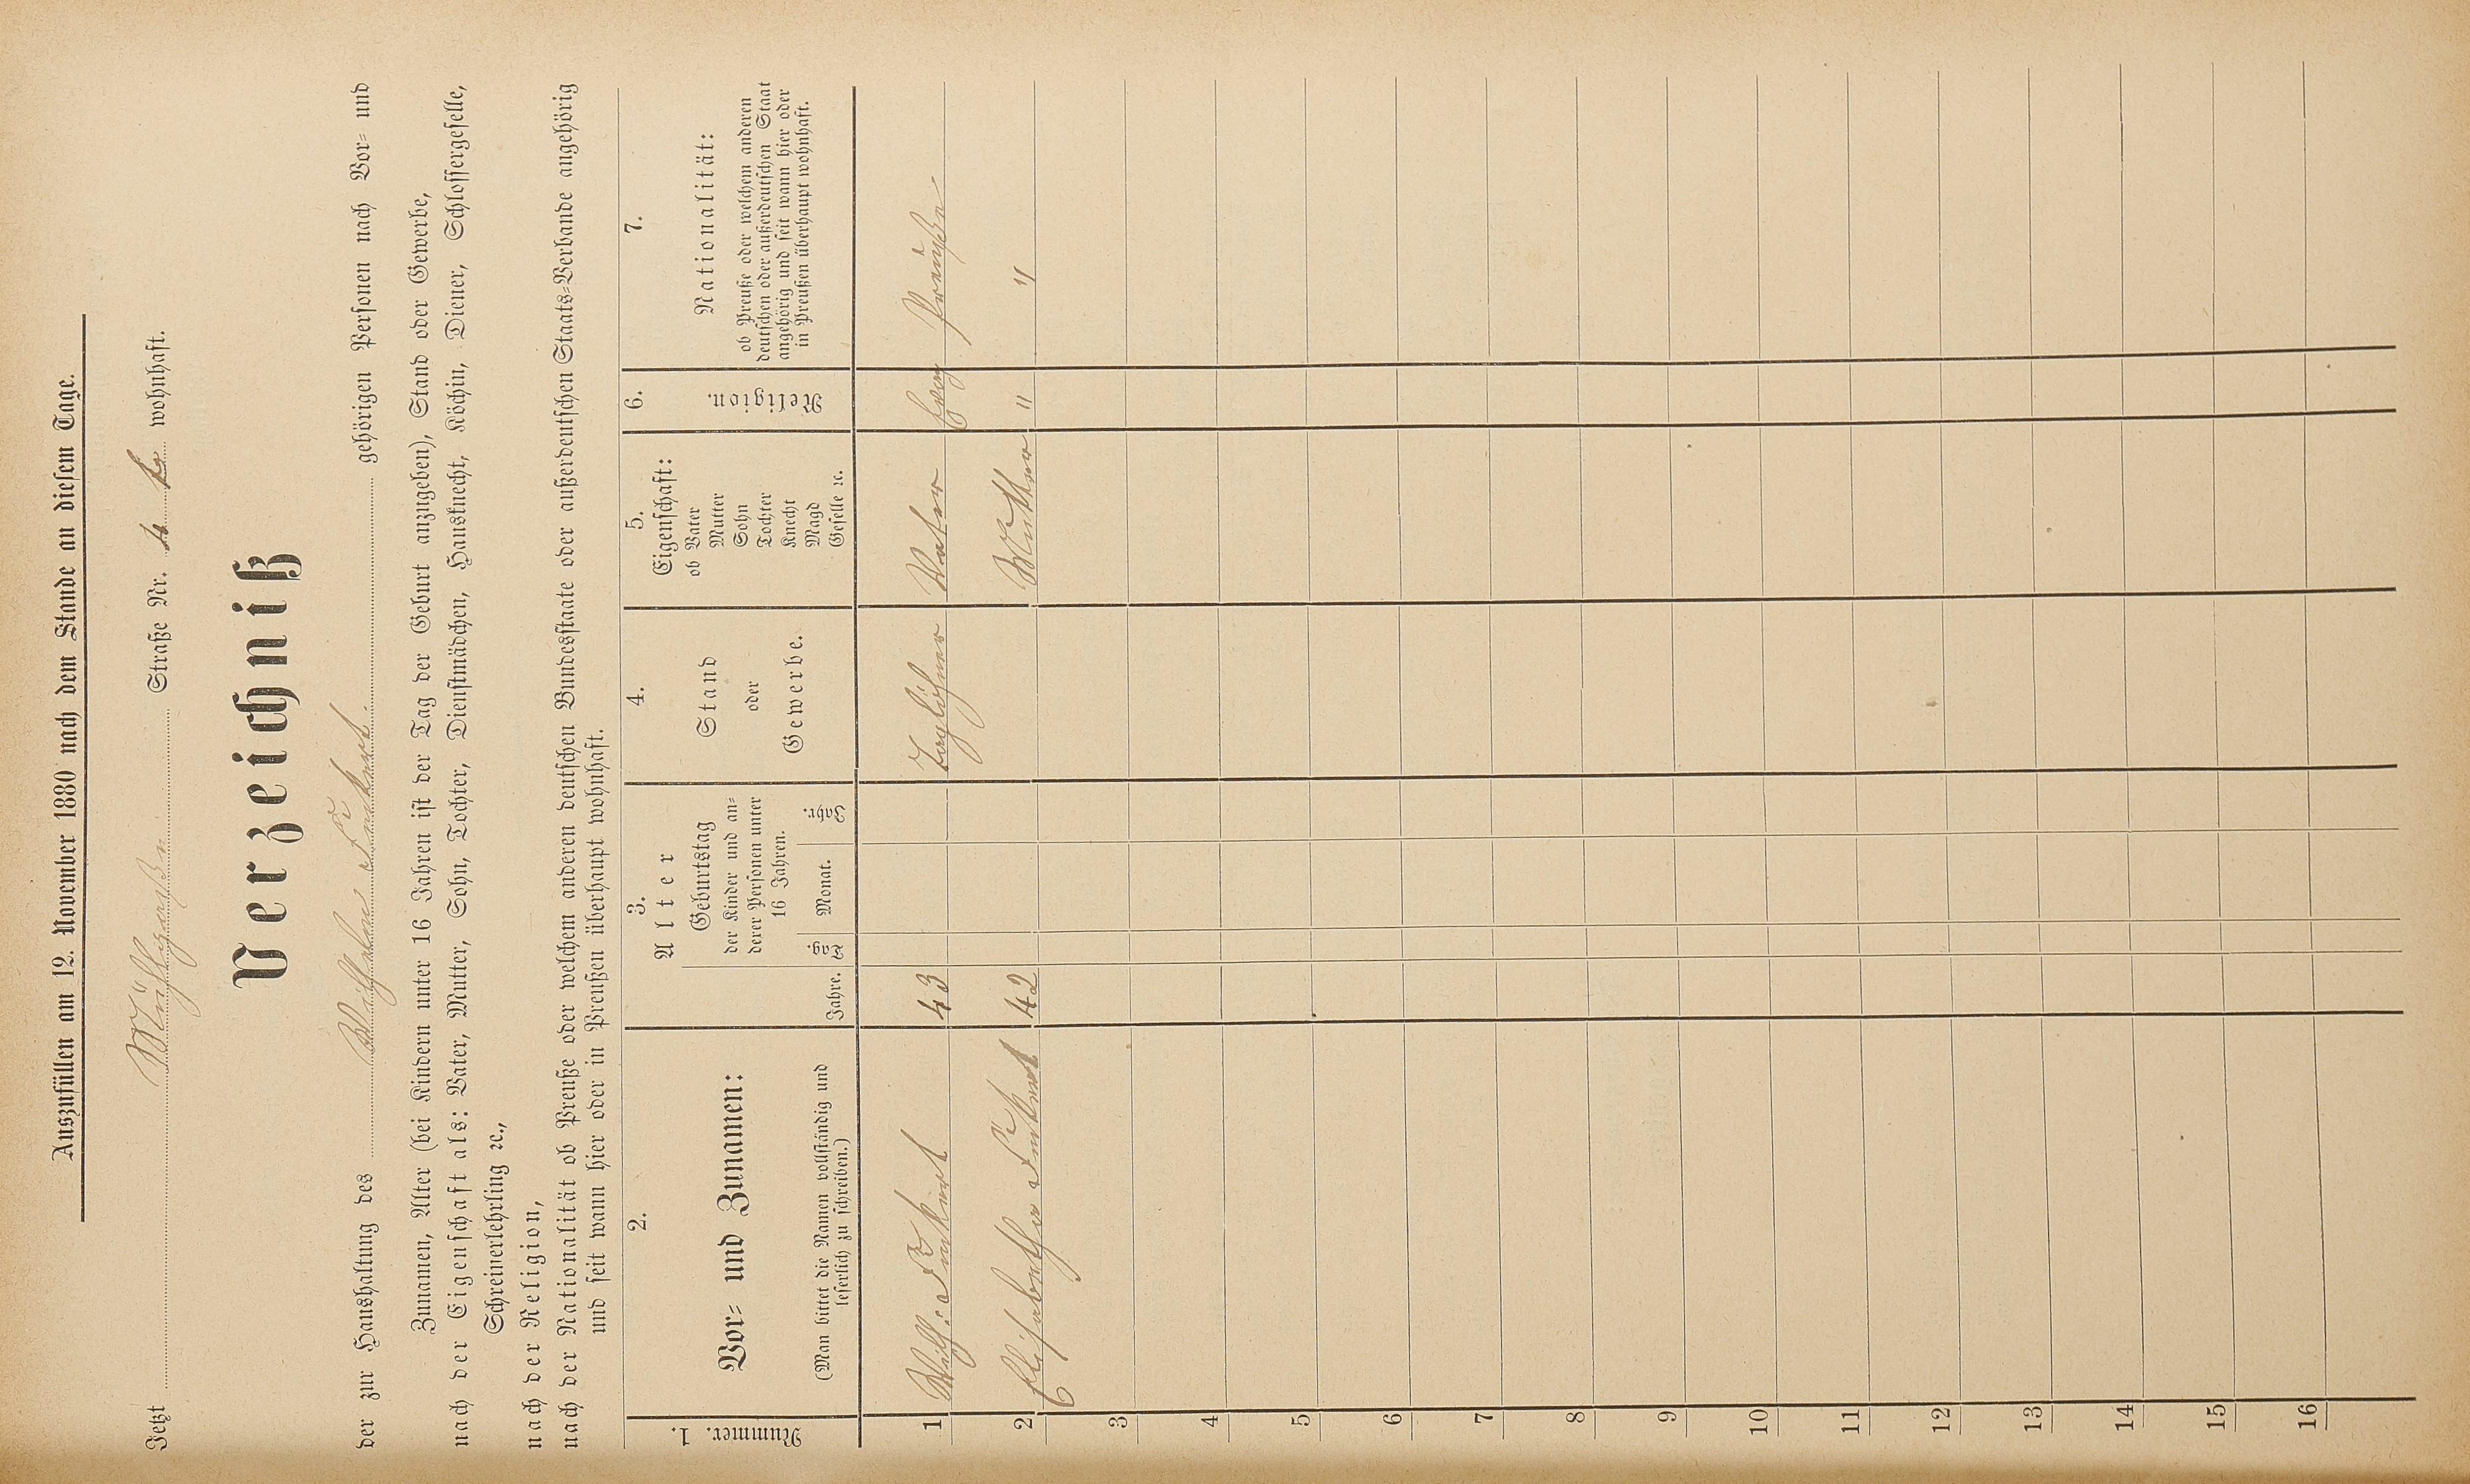 Auszufüllen am 12. November 1880 nach dem Stande an diesem Tage.
Jetzt Mühlgasse Straße Nr. 4 wohnhaft.
Verzeichniß
der zur Haushaltung des Wilhelm Funkert gehörigen Personen nach Vor- und
Zunamen, Alter (bei Kindern unter 16 Jahren ist der Tag der Geburt anzugeben), Stand oder Gewerbe,
nach der Eigenschaft als: Vater, Mutter, Sohn, Tochter, Dienstmädchen, Hausknecht, Köchin, Diener, Schlossergeselle,
Schreinerlehrling ꝛc.,
nach der Religion,
nach der Nationalität ob Preuße oder welchem anderen deutschen Bundesstaate oder außerdeutschen Staats-Verbande angehörig
und seit wann hier oder in Preußen überhaupt wohnhaft.
Nummer. 1.
2.
Vor- und Zunamen:
(Man bittet die Namen vollständig und
leserlich zu schreiben.)
3.
Alter
Jahre.
Geburtstag
der Kinder und an-
derer Personen unter
16 Jahren.
Tag. Monat. Jahr.
4.
Stand
oder
Gewerbe.
5.
Eigenschaft:
ob Vater
Mutter
Sohn
Tochter
Knecht
Magd
Geselle ꝛc.
6.
Religion.
7.
Nationalität:
ob Preuße oder welchem anderen
deutschen oder außerdeutschen Staat
angehörig und seit wann hier oder
in Preußen überhaupt wohnhaft.
1 Wilh: Funkert 43 Taglöhner Vater Evg Preuße
2 Elisabetha Funkert 42 Mutter " "
3
4
5
6
7
8
9
10
11
12
13
14
15
16